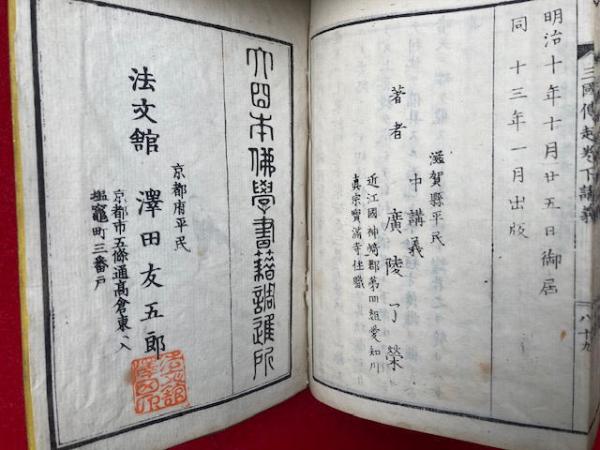 三國傳起卷下講義
八十九
明治十年十月廿五日御届
同 十三年一月出版
滋賀縣平民
著者 中講義 廣陵了榮
近江國神崎郡第四組愛知川
真宗寶滿寺住職
大日本佛學書籍調進所
京都府平民
法文舘 澤田友五郎
京都市五條通髙倉東入
塩竈町三番戸